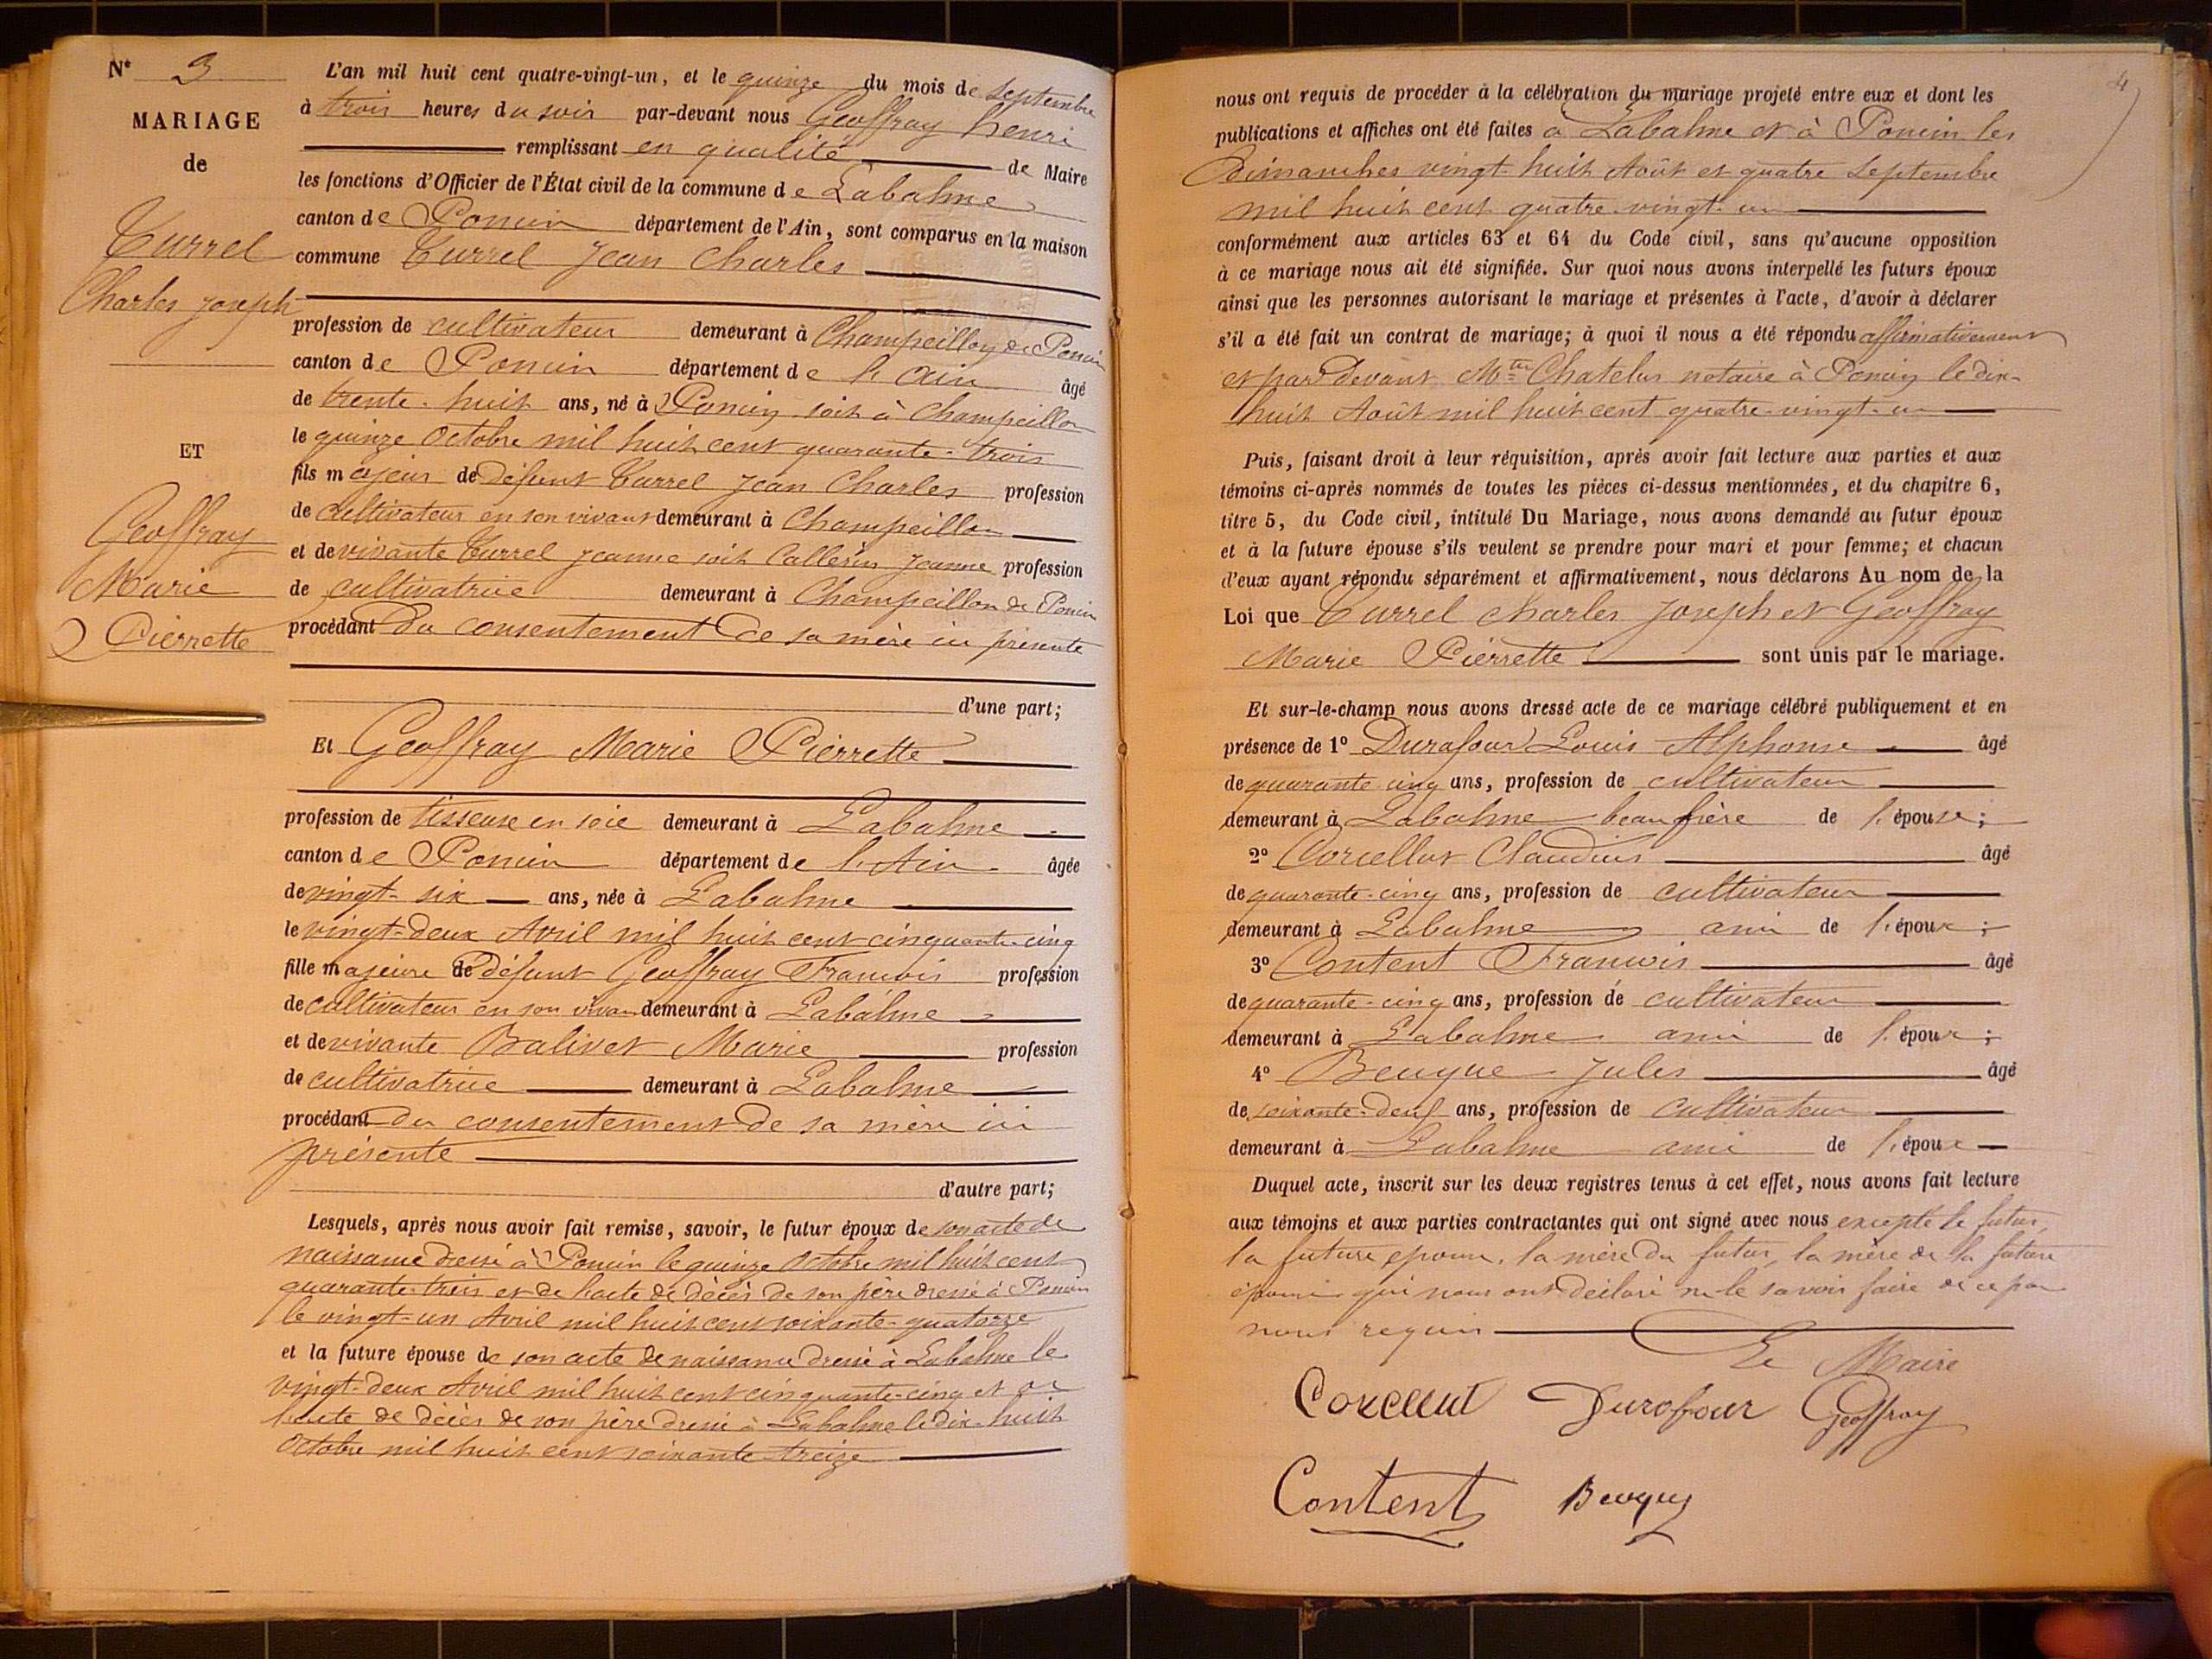 N° 3
MARIAGE
de
Turrel
Charles Joseph
ET
Geoffray
Marie
Pierrette
L'an mil huit cent quatre-vingt-un, et le quinze du mois de Septembre
à trois heures du soir par-devant nous Geoffray henri
remplissant en qualité de Maire
les fonctions d'Officier de l'État civil de la commune de Labalme
canton de Poncin département de l'Ain, sont comparus en la maison
commune Turrel Jean Charles
profession de cultivateur demeurant à Champeillon de Poncin
canton de Poncin département de l'Ain âgé
de trente-huit ans, né à Poncin soit à Champeillon
le quinze Octobre mil huit cent quarante-trois
fils majeur de défunt Turrel Jean Charles profession
de cultivateur en son vivant demeurant à Champeillon
et de vivante Turrel Jeanne soit Jeanne profession
de cultivatrice demeurant à Champeillon de Poncin
procédant du consentement de sa mère ici présente
d'une part;
Et Geoffray Marie Pierrette
profession de tisseuse en soie demeurant à Labalme
canton de Poncin département de l'Ain âgée
de vingt-six ans, née à Labalme
le vingt-deux Avril mil huit cent cinquante-cinq
fille majeure de défunt Geoffray François profession
de cultivateur en son vivan demeurant à Labalme
et de vivante Balivet Marie profession
de cultivatrice demeurant à Labalme
procédant du consentement de sa mère ici
présente
d'autre part;
Lesquels, après nous avoir fait remise, savoir, le futur époux de son acte de
naissance dressé à Poncin le quinze Octobre mil huit cent
quarante-trois et de l'acte de décès de son père dressé à Poncin
le vingt-un Avril mil huit cent soixante-quatorze
et la future épouse de son acte de naissance dressé à Labalme le
vingt-deux Avril mil huit cent cinquante-cinq et de
l'acte de décès de son père dressé à Labalme le dix-huit
Octobre mil huit cent soixante treize
4
nous ont requis de procéder à la célébration du mariage projeté entre eux et dont les
publications et affiches ont été faites à Labalme et à Poncin les
Dimanches vingt-huit Août et quatre Septembre
mil huit cent quatre-vingt-un
conformément aux articles 63 et 64 du Code civil, sans qu'aucune opposition
à ce mariage nous ait été signifiée. Sur quoi nous avons interpellé les futurs époux
ainsi que les personnes autorisant le mariage et présentes à l'acte, d'avoir à déclarer
s'il a été fait un contrat de mariage; à quoi il nous a été répondu affirmativement
et par Devant Mtre Chatelus notaire à Poncin le dix-
huit Août mil huit cent quatre-vingt-un
Puis, faisant droit à leur réquisition, après avoir fait lecture aux parties et aux
témoins ci-après nommés de toutes les pièces ci-dessus mentionnées, et du chapitre 6,
titre 5, du Code civil, intitulé Du Mariage, nous avons demandé au futur époux
et à la future épouse s'ils veulent se prendre pour mari et pour femme; et chacun
d'eux ayant répondu séparément et affirmativement, nous déclarons Au nom de la
Loi que Turrel Charles Joseph et Geoffray
Marie Pierrette sont unis par le mariage.
Et sur-le-champ nous avons dressé acte de ce mariage célébré publiquement et en
présence de 1° Durafour Louis Alphonse âgé
de quarante cinq ans, profession de cultivateur
demeurant à Labalme beau frère de l'épouse;
2° Corcellut Claudius âgé
de quarante-cinq ans, profession de cultivateur
demeurant à Labalme ami de l'époux;
3° Content François âgé
de quarante-cinq ans, profession de cultivateur
demeurant à Labalme ami de l'époux;
4° Beuque Jules âgé
de ans, profession de cultivateur
demeurant à Labalme ami de l'époux
Duquel acte, inscrit sur les deux registres tenus à cet effet, nous avons fait lecture
aux témoins et aux parties contractantes qui ont signé avec nous excepté le futur,
la future épouse, la mère du futur, la mère de la future
épouse qui nous ont déclaré ne le savoir faire de ce par
nous requis
Le Maire
Corcellut Durafour Geoffray
Content Beuque